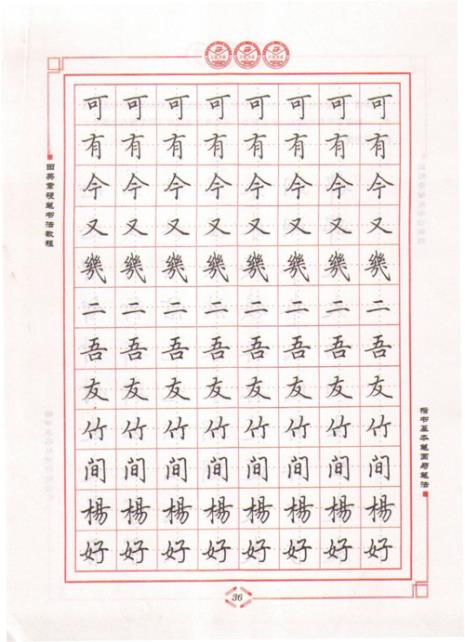 可可可可可可可可
有有有有有有有有
今今今今今今今今
又又又又又又又又
幾幾幾幾幾幾幾幾
二二二二二二二二
吾吾吾吾吾吾吾吾
友友友友友友友友
竹竹竹竹竹竹竹竹
间间间间间间间间
楊楊楊楊楊楊楊楊
好好好好好好好好
田英章硬笔书法教程
楷书基本笔画与笔法
36